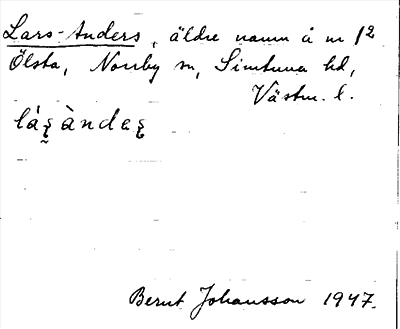 Lars-Anders, äldre namn å nr 12
Ölsta, Norrby sn, Simtuna hd,
Västm. l.
Bernt Johansson 1947.